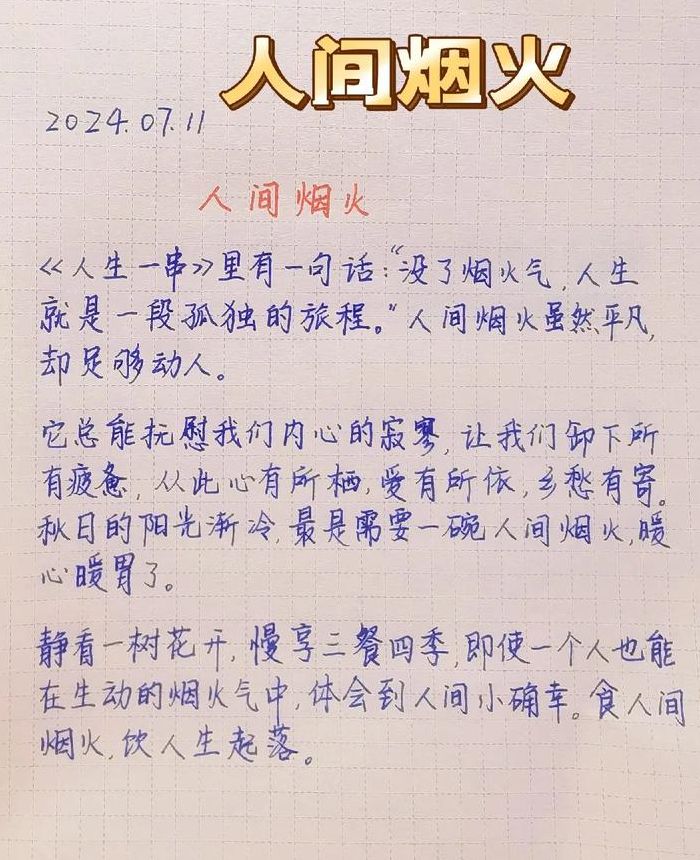 人间烟火
2024.07.11
人间烟火
《人生一串》里有一句话:“没了烟火气,人生
就是一段孤独的旅程。”人间烟火虽然平凡,
却足够动人。
它总能抚慰我们内心的寂寥,让我们卸下所
有疲惫,从此心有所栖,爱有所依,乡愁有寄。
秋日的阳光渐冷,最是需要一碗人间烟火,暖
心暖胃了。
静看一树花开,慢享三餐四季,即使一个人也能
在生动的烟火气中,体会到人间小确幸。食人间
烟火,饮人生起落。